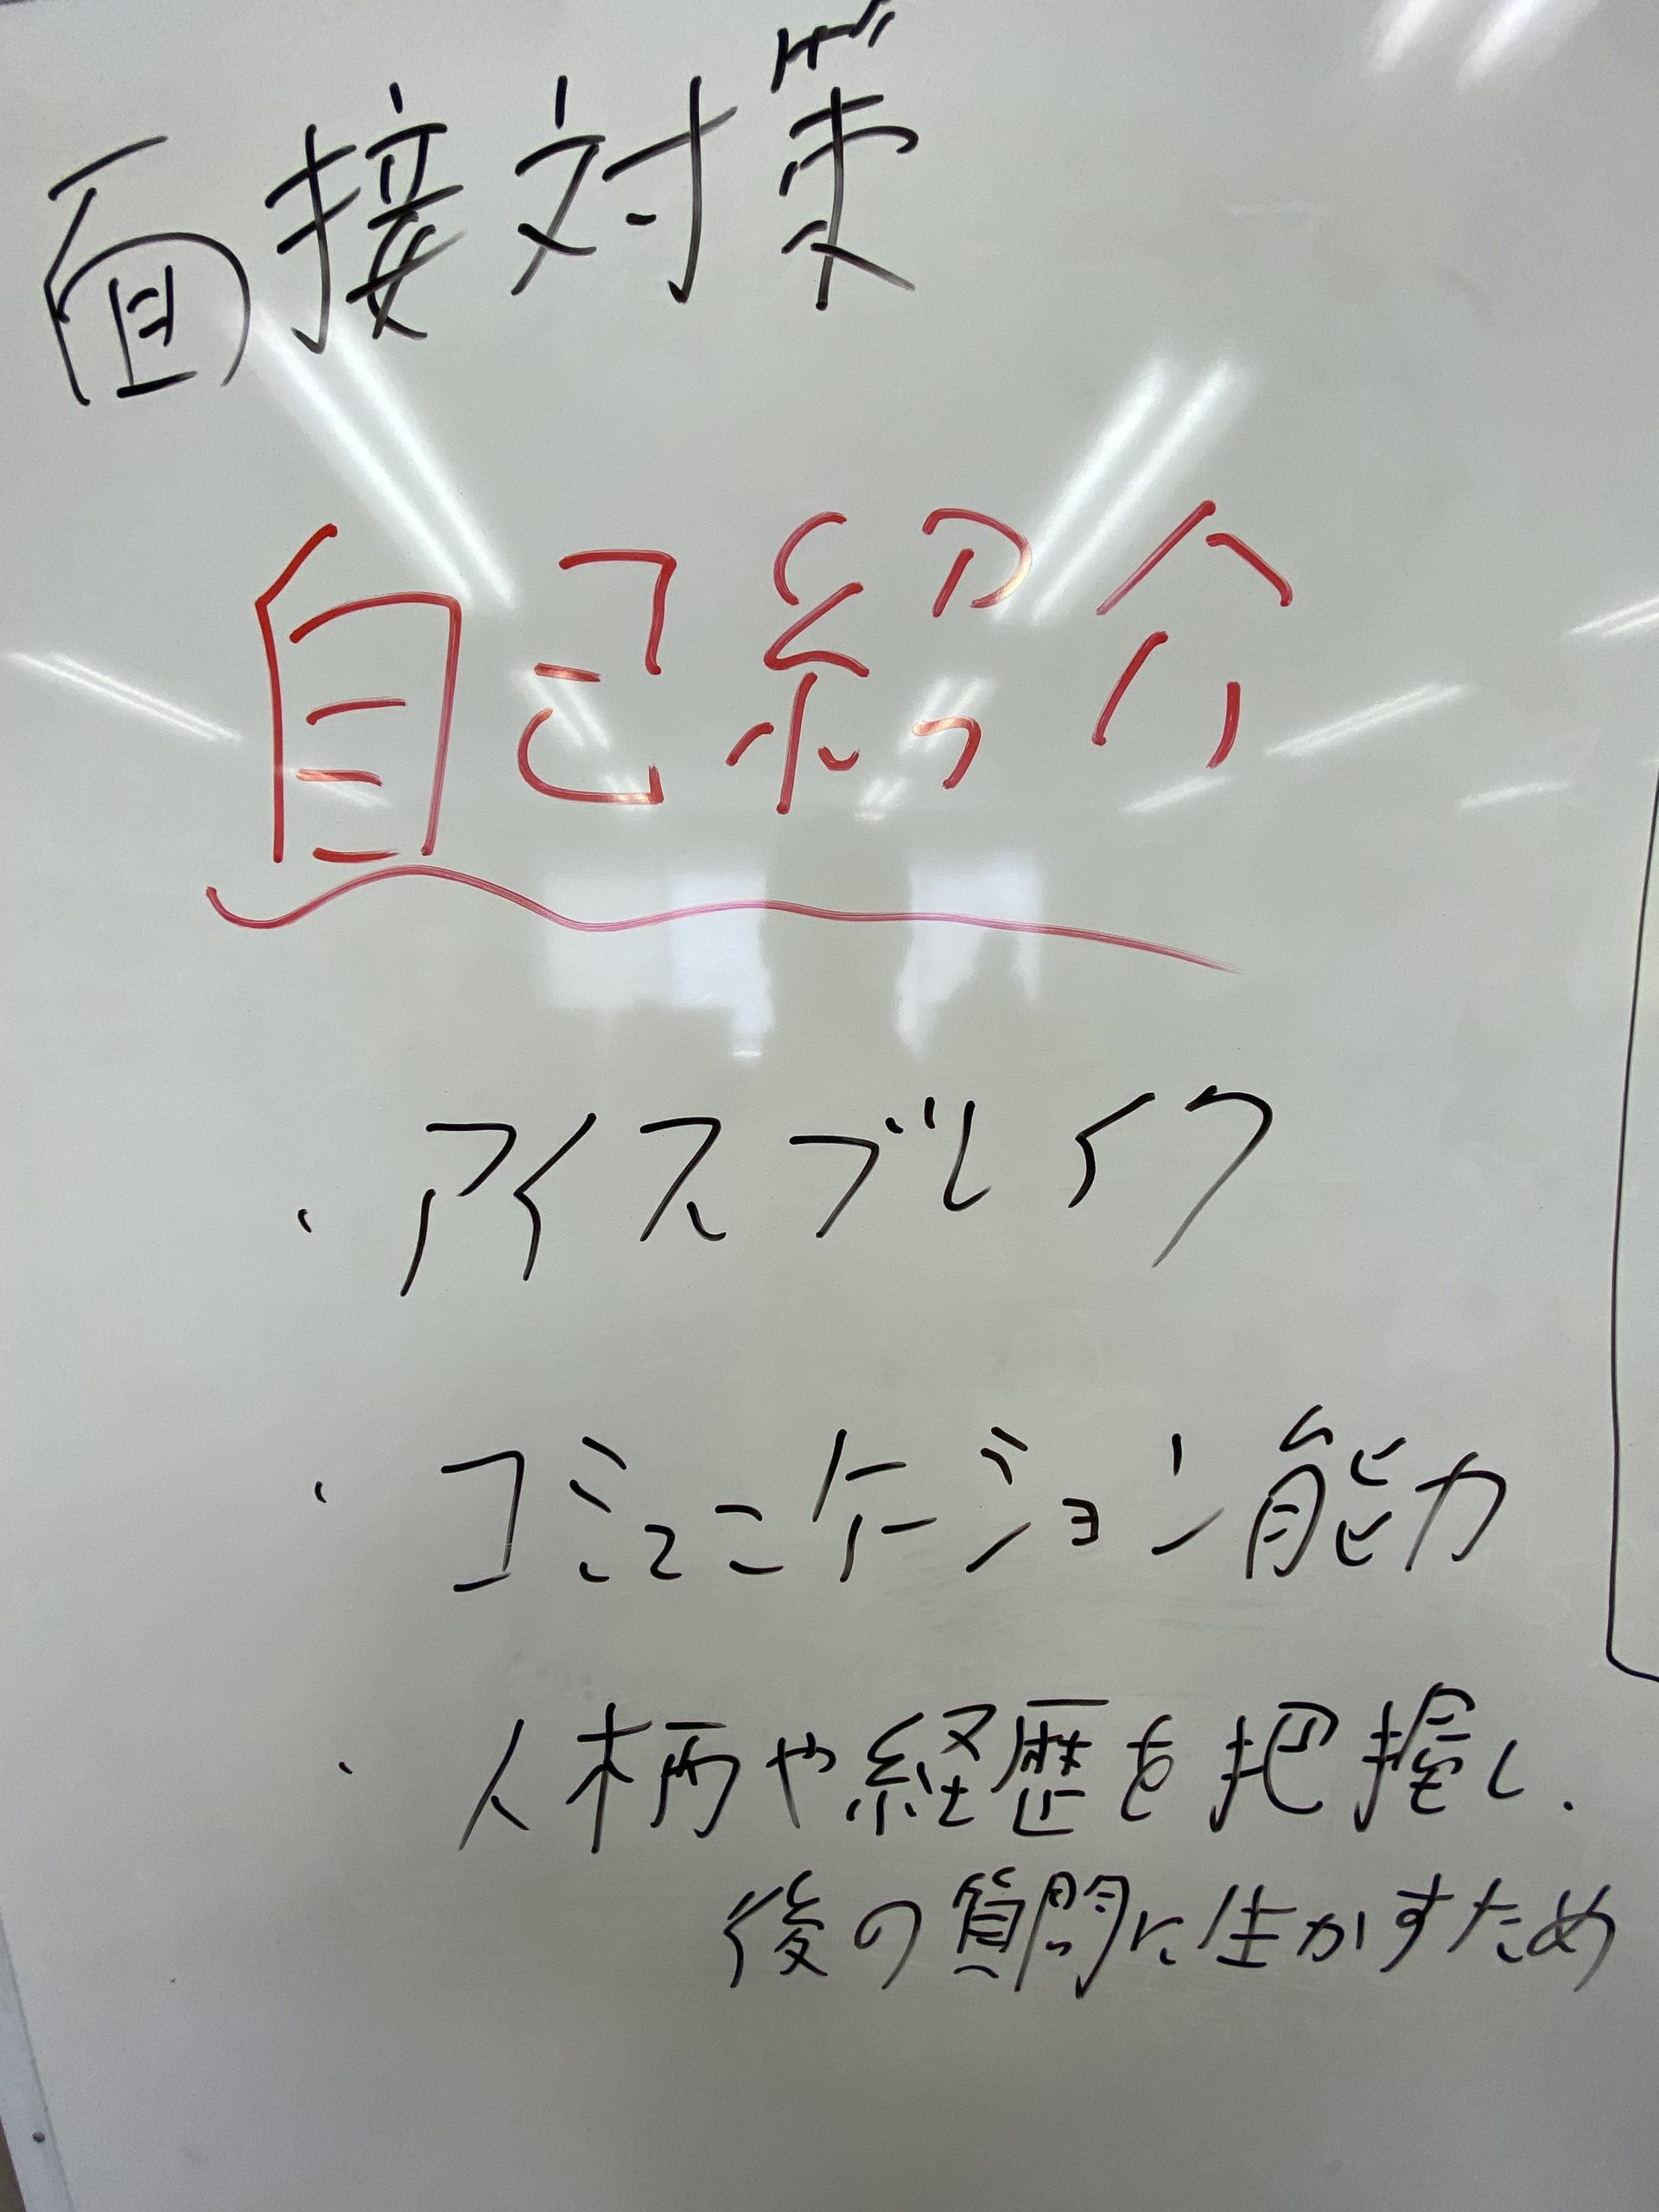 面接対策
自己紹介
・アイスブレイク
・コミュニケーション能力
・人柄や経歴を把握し、
後の質問に生かすため